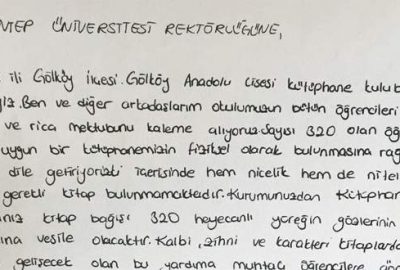 NTEP ÜNİVERSİTESİ REKTÖRLÜĞÜNE,
ili Gölköy ilçesi. Gölköy Anadolu Lisesi kütüphane kulüb
yız. Ben ve diğer arkadaşlarım okulumuzun bütün öğrencileri
ve rica mektubunu kaleme alıyoruz. Sayısı 320 olan öğ
uygun bir kütüphanemizin fiziksel olarak bulunmasına rağ
dile getiriyoruz) içerisinde hem nicelik hem de nitel
gerekli kitap bulunmamaktadır. Kurumunuzdan Kütüphan
nız kitap bağışı 320 heyecanlı yüreğin gözlerinin
ına vesile olacaktır. Kalbi, zihni ve karakteri kitaplarda
gelişecek olan bu yardıma muhtaç öğrencilere